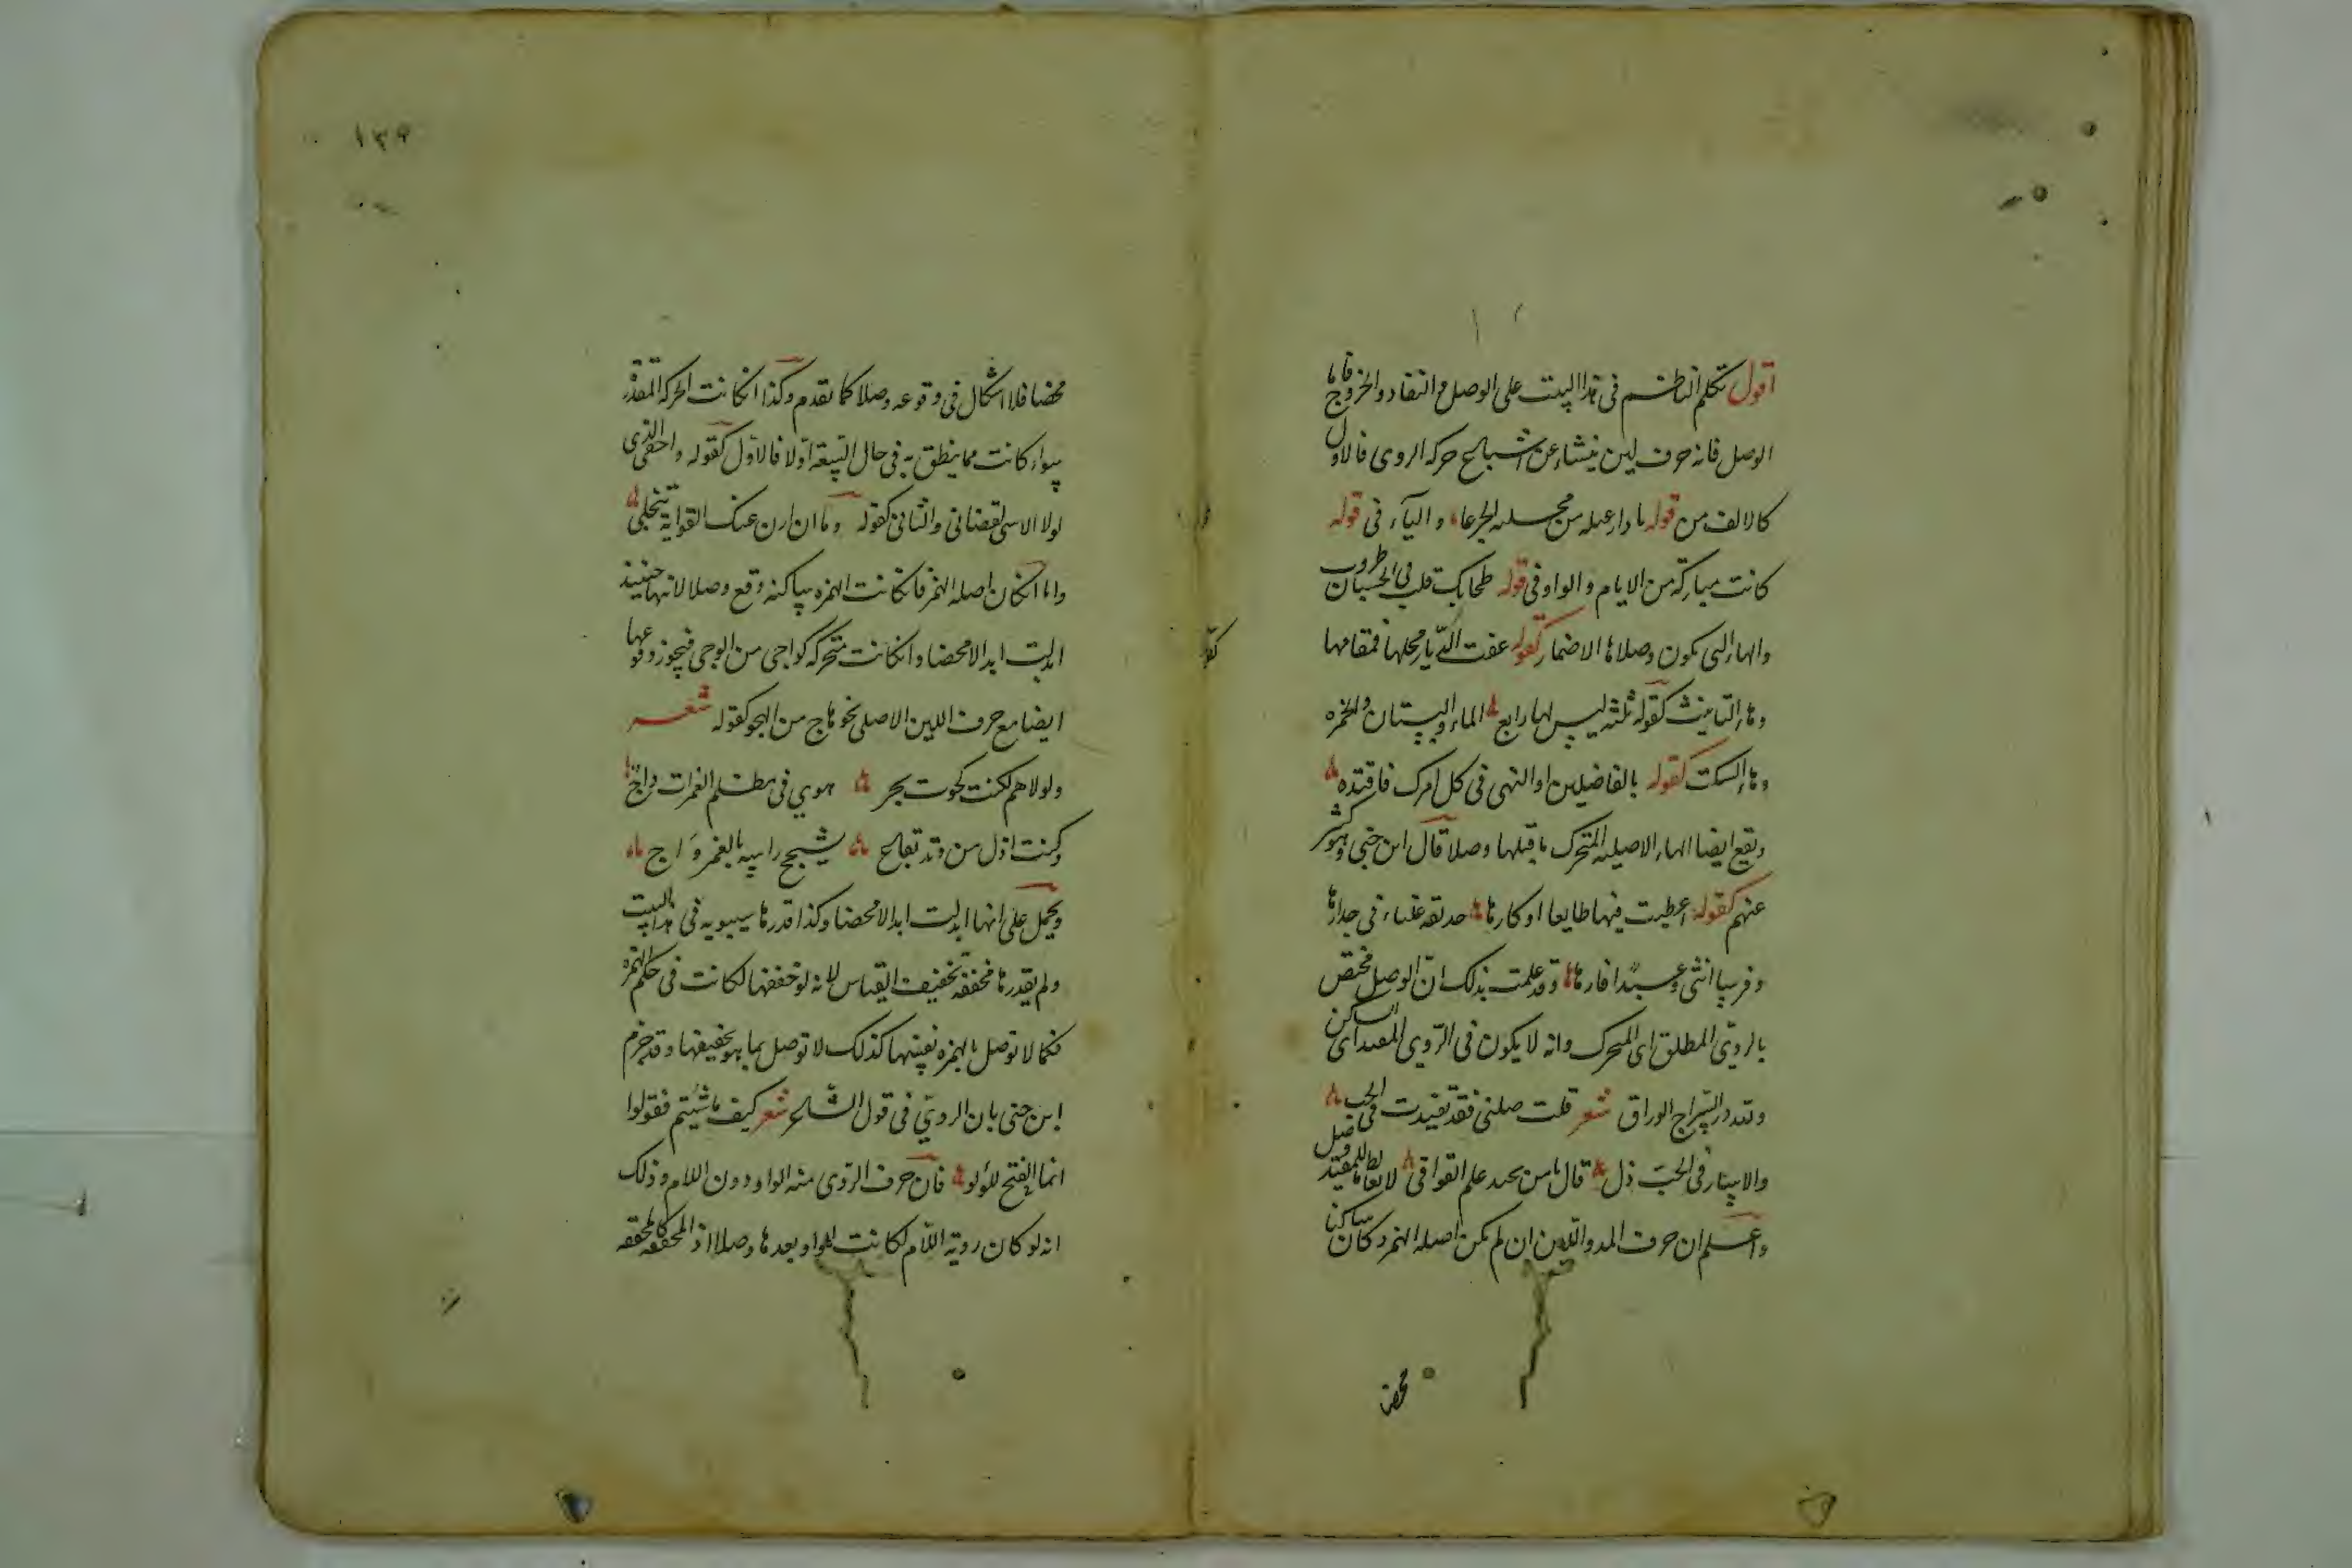 اقول تكلم الناظم فى هذا البيت على الوصل والنفاد والخروج فاما
الوصل فانه حرف لين ينشاء عن اشباع حركه الروى فالاول
كالالف من قوله يا دار عبله من محسله الجرعاء والياء فى قوله
كانت مباركة من الايام والواو فى قوله طحابك قلب فى الحسان طروب
والهاء التى يكون وصلا ها الاضمار كقوله عفت الديار محلها فمقامها
وهاء التانيث كقوله ثلثه ليس لها رابع الماء والبستان والخمره
وهاء السكت كقوله بالفاضلين اولى النهى فى كل امرك فاقتده
وتقع ايضا الهاء الاصليه المتحرك ما قبلها وصلا قال ابن جنى وهو كثير
عنهم كقوله اعطيت فيها طايعا او كارها حديقه غلباء فى جدارها
وفرسا انثى وعبدا فارها وقد علمت بذلك ان الوصل مختص
بالروى المطلق اى المتحرك وانه لا يكون فى الروى المقيد اى الساكن
ولله در السراج الوراق شعر قلت صلنى فقد تقيدت فى الحب
والاسار فى الحب ذل قال يا من يجيد علم القوافى لا تغالط ما للمقيد وصل
واعلم ان حرف المد واللين ان لم يكن اصله الهمز وكان ساكنا
محضا
١٣٩
محضا فلا اشكال فى وقوعه وصلا كما تقدم وكذا ان كانت الحركه المقدره
سواء كانت مما ينطق به فى حال السعة او لا فالاول كقوله واخفى الذى
لولا الاسى لقضانى والثانى كقوله وما ان ارن عنك الغواية تنجلى
واما ان كان اصله الهمز فان كانت الهمزه ساكنه وقع وصلا لانها حينئذ
ابدلت ابدالا محضا وان كانت متحركه كواجى من الوجى فيجوز وقوعها
ايضا مع حرف اللين الاصلى نحو هاج من الهجو كقوله شعر
ولولاهم لكنت كحوت بحر هوى فى مظلم الغمرات داج
وكنت اذل من وتد بقاع يشجج راسه بالفهر واج
ويحمل على انها ابدلت ابدالا محضا وكذا قدرها سيبويه فى هذا البيت
ولم يقدرها مخففه تخفيف القياس لانه لو خففها لكانت فى حكم الهمزه
فكما لا توصل بالهمزه نفسها كذلك لا توصل بما هو تخفيفها وقد جزم
ابن جنى بان الروى فى قول الشاعر شعر كيف ما شئتم فقولوا
انما الفتح للولو فان حرف الروى منه الواو دون اللام وذلك
انه لو كان رويه اللام لكانت الواو بعدها وصلا اذ المخففه كالمحققه